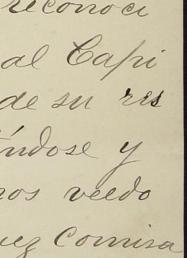 reconoci
al Capi
de su res
ndose y
nos veedo
uez comisa